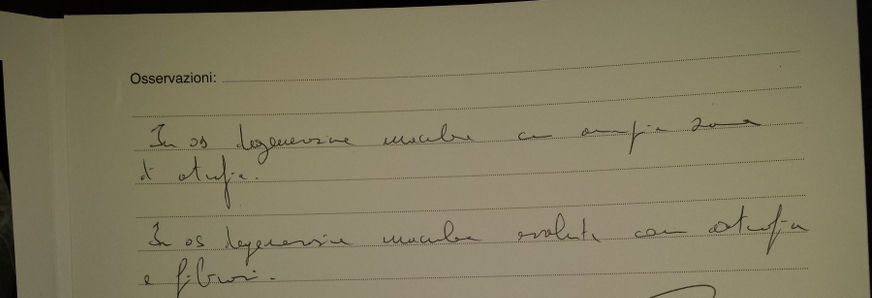 Osservazioni:
In os degenerazione maculare con ampia zona
di atrofia.
In os degenerazione maculare evoluta con atrofia
e fibrosi.